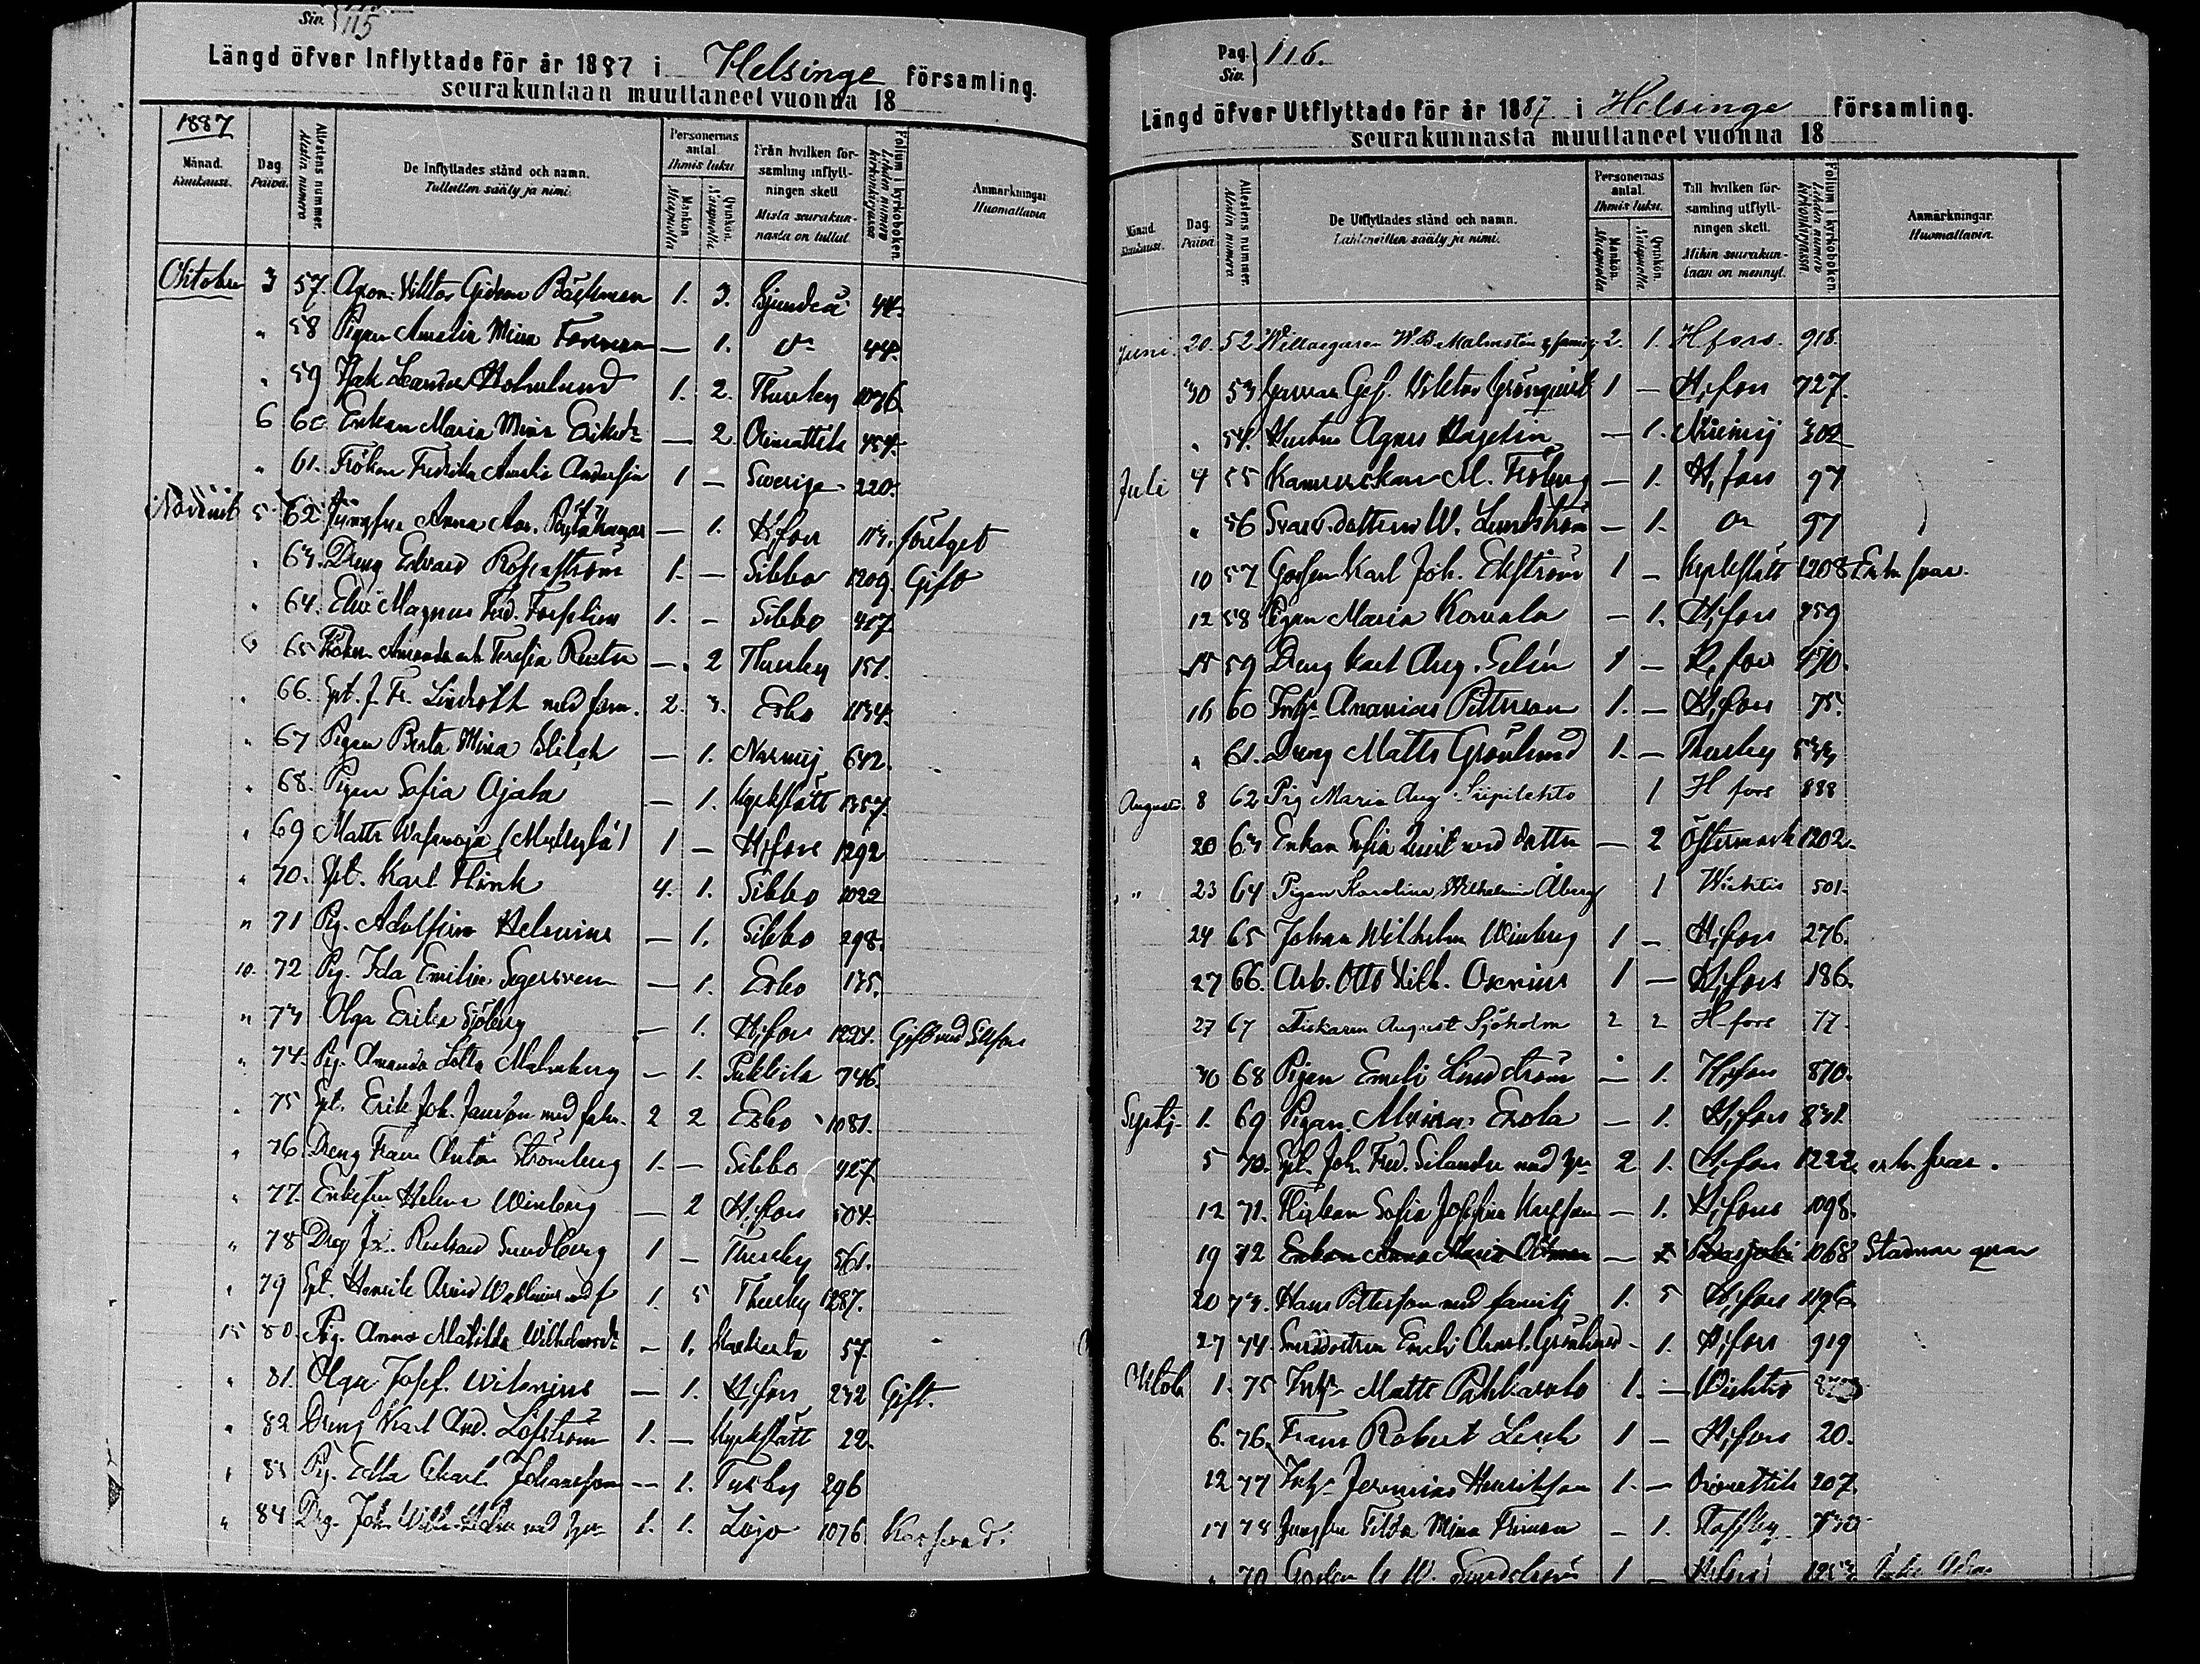 Siv. 115
Längd öfver Inflyttade för år 1887 i Helsinge församling.
seurakuntaan muuttaneet vuonna 18
1887
Månad. Kuukausi.
Dag. Päivä.
Attestens nummer. Atestin numero
De Inflyttades stånd och namn. Tulleitten sääty ja nimi.
Personernas antal. Ihmis luku
Mankön. Miespuolta
Qvinkön. Naispuolta
Från hvilken församling inflyttningen skett Mistä seurakunnasta on tullut.
Folium i kyrkoboken. Lehden numero kirkonkirjassa
Anmärkningar. Huomattavia
Oktober 3 57. Agron. Viktor Gideon Bäckman 1. 3. Sjundeå 44.
" 58 Pigan Amalia Mina — 1. d:o 44.
" 59 Isak Leander Holmlund 1. 2. Thusby 1076
6 60 Enkan Maria Mina Eriksd:r — 2 Orimattila 454.
" 61. Fröken Fredrika Amalia Andersin 1 — Sverige 220.
Novemb 5 62 Jungfru Anna — 1. H:fors 113.
" 63. Dreng Edvard Rosenström 1. — Sibbo 1209. Gift
" 64. Elev Magnus Fred. Forselius 1. — Sibbo 417.
" 65 Fröken Amanda och Teresia — 2 Thusby 151.
" 66. Spt. J. Fr. Lindroth med fam. 2. 3. Esbo 1134.
" 67 Pigan Berta Mina — 1. Nurmij 642.
" 68. Pigan Sofia Ojala — 1. Kyrkslätt 1357.
" 69 Matts 1 — H:fors 1292
" 70. Spt. Karl Flink 4. 1. Sibbo 1022
" 71 Pig. Adolfina Helenius — 1. Sibbo 298.
10. 72 Pig. Ida Emilia Segersven — 1. Esbo 175.
" 73 Olga Erika Sjöberg — 1. H:fors 1224. Gift med
" 74. Pig. Amanda Lotta Malmberg — 1. Pukkila 746.
" 75 Spt. Erik Joh. Jansson med fam. 2 2 Esbo 1081.
" 76 Dreng Frans Anton Strömberg 1. — Sibbo 427.
" 77. Enkefru Helena Winberg — 2 H:fors 504.
" 78 Drg Richard Sundberg 1 — Thusby 561.
" 79 Spt. Henrik Arvid Wahlenius med f 1. 5 Thusby 1287.
15 80. Pig. Anna Matilda Wilhelmsd:r — 1. 57.
" 81. Olga Josef. Witenius — 1. H:fors 232 Gift.
" 82 Dreng Karl And. Löfström 1. — Kyrkslätt 22.
" 83 Pig. Edla Charl. Johansson — 1. Tusby 296
" 84 Drg. Joh. Wilh. med 1. 1. Lojo 1076.
Pag. Siv. 116.
Längd öfver Utflyttade för år 1887 i Helsinge församling.
seurakunnasta muuttaneet vuonna 18
Månad. Kuukausi.
Dag. Päivä.
Attestens nummer. Atestin numero
De Utflyttades stånd och namn. Lähteneitten sääty ja nimi.
Personernas antal. Ihmis luku.
Mankön. Miespuolta
Qvinkön. Naispuolta
Till hvilken församling utflyttningen skett. Mihin seurakuntaan on mennyt.
Folium i kyrkoboken. Lehden numero kirkonkirjassa
Anmärkningar. Huomattavia.
Juni. 20. 52 Villaegaren W. B. Malmstén & familj 2. 1. H fors. 918.
30 53 Viktor Grönqvist 1 — H:fors 727.
" 54. Hustru Agnes Hagelin — 1. Nurmij 302
Juli 4 55 M. Froberg — 1. H:fors 97
" 56 Svärdottern W. Lundström — 1. d:o 97
10 57 Gossen Karl Joh. Ekström 1 — Kyrkslätt 1208
12 58 Pigan Maria — 1. H:fors 459
15 59 Dreng Karl Aug. Selin 1 — H:fors 470.
16 60 Inh:s Ananias Petterson 1. — H:fors 75.
" 61. Dreng Matts Grönlund 1. — Thusby
Augusti. 8 62 Pig Maria Aug. Siipilehto 1 H fors 888
20 63 Enkan Sofia med dotter — 2 Östermark 1202.
" 23 64 Pigan Karolina Wilhelmina Åberg 1 Wichtis 501.
24 65 Johan Wilhelm Winberg 1 — H:fors 276.
27 66. Arb. Otto Vilh. Oxenius 1 — H:fors 186.
27 67 Fiskaren August Sjöholm 2 2 H-fors 77.
30 68 Pigan Emeli Lindström — 1. H:fors 870.
Septbr. 1. 69 Pigan Maria Erola — 1. H:fors 831.
5 70. Spt. Joh. Fred. Silander med 2 1. H:fors 1222.
12 71. Flickan Sofia Josefina Karlsson — 1. H:fors 1098.
19 72 Enkan Anna Maria — 1068 Stadnar qvar
20 73. Hans Petterson med familj 1. 5 H:fors 1196.
27 74. Emeli Charl. Grönlund — 1. H:fors 919
Oktob 1. 75 Inh:s Matts 1. — Wichtis
6. 76. Frans Robert 1 — H:fors 20.
12 77 Inh:s Jeremias Henriksson 1. — Orimattila 207.
17 78 Jungfru Tilda Mina — 1.
" 79 Gossen W. 1